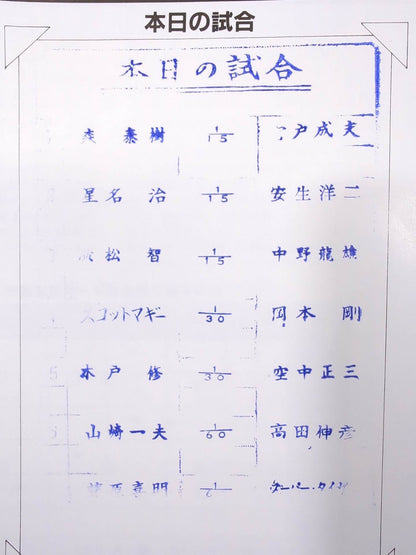 本日の試合
本日の試合
泰樹 1/15 戸成夫
星名 治 1/15 安生洋二
松 智 1/15 中野龍雄
スコットマギー 1/30 岡本 剛
5 木戸 修 1/30 空中正三
6 山崎一夫 1/60 高田伸彦
藤原喜明 スーパー・タイガ